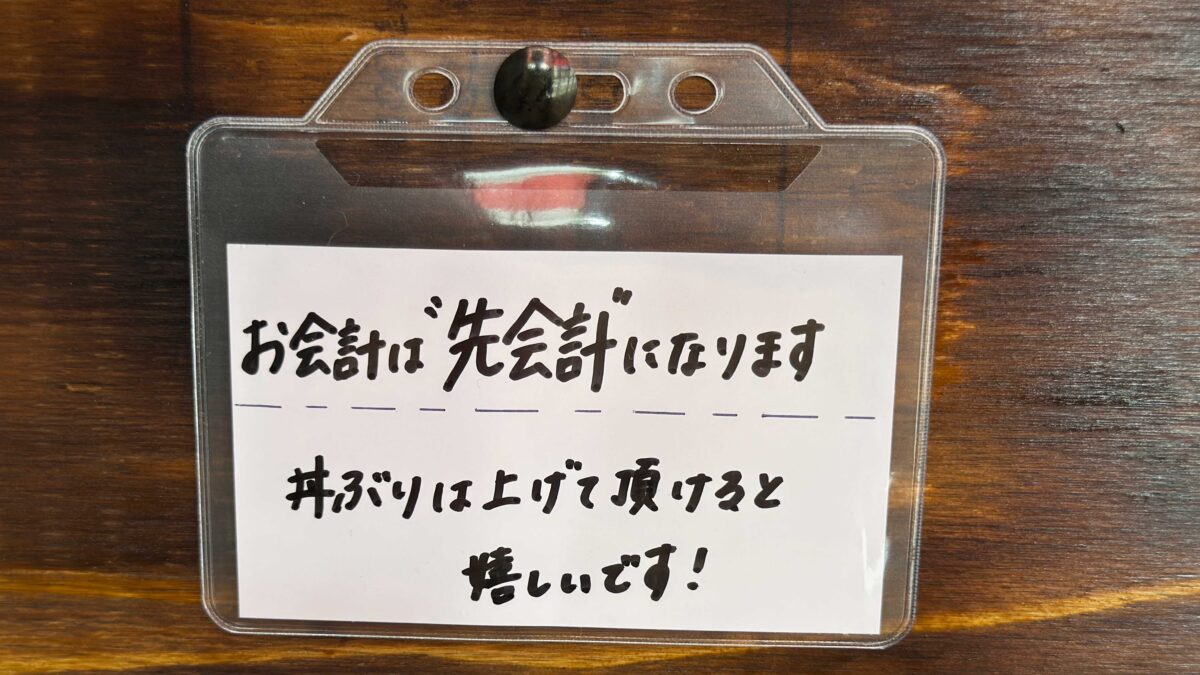 お会計は"先会計"になります
丼ぶりは上げて頂けると
嬉しいです!